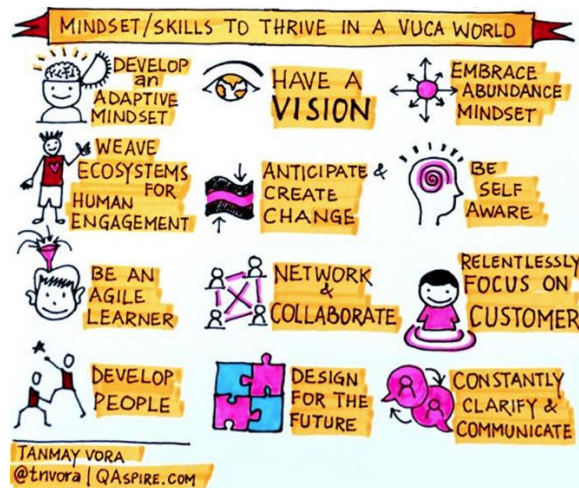 MINDSET/SKILLS TO THRIVE IN A VUCA WORLD
DEVELOP
an
ADAPTIVE
MINDSET
HAVE A
VISION
EMBRACE
ABUNDANCE
MINDSET
WEAVE
ECOSYSTEMS
FOR
HUMAN
ENGAGEMENT
ANTICIPATE &
CREATE
CHANGE
BE
SELF
AWARE
BE AN
AGILE
LEARNER
NETWORK
&
COLLABORATE
RELENTLESSLY
FOCUS ON
CUSTOMER
DEVELOP
PEOPLE
DESIGN
FOR THE
FUTURE
CONSTANTLY
CLARIFY &
COMMUNICATE
TANMAY VORA
@tnvora | QASPIRE.COM